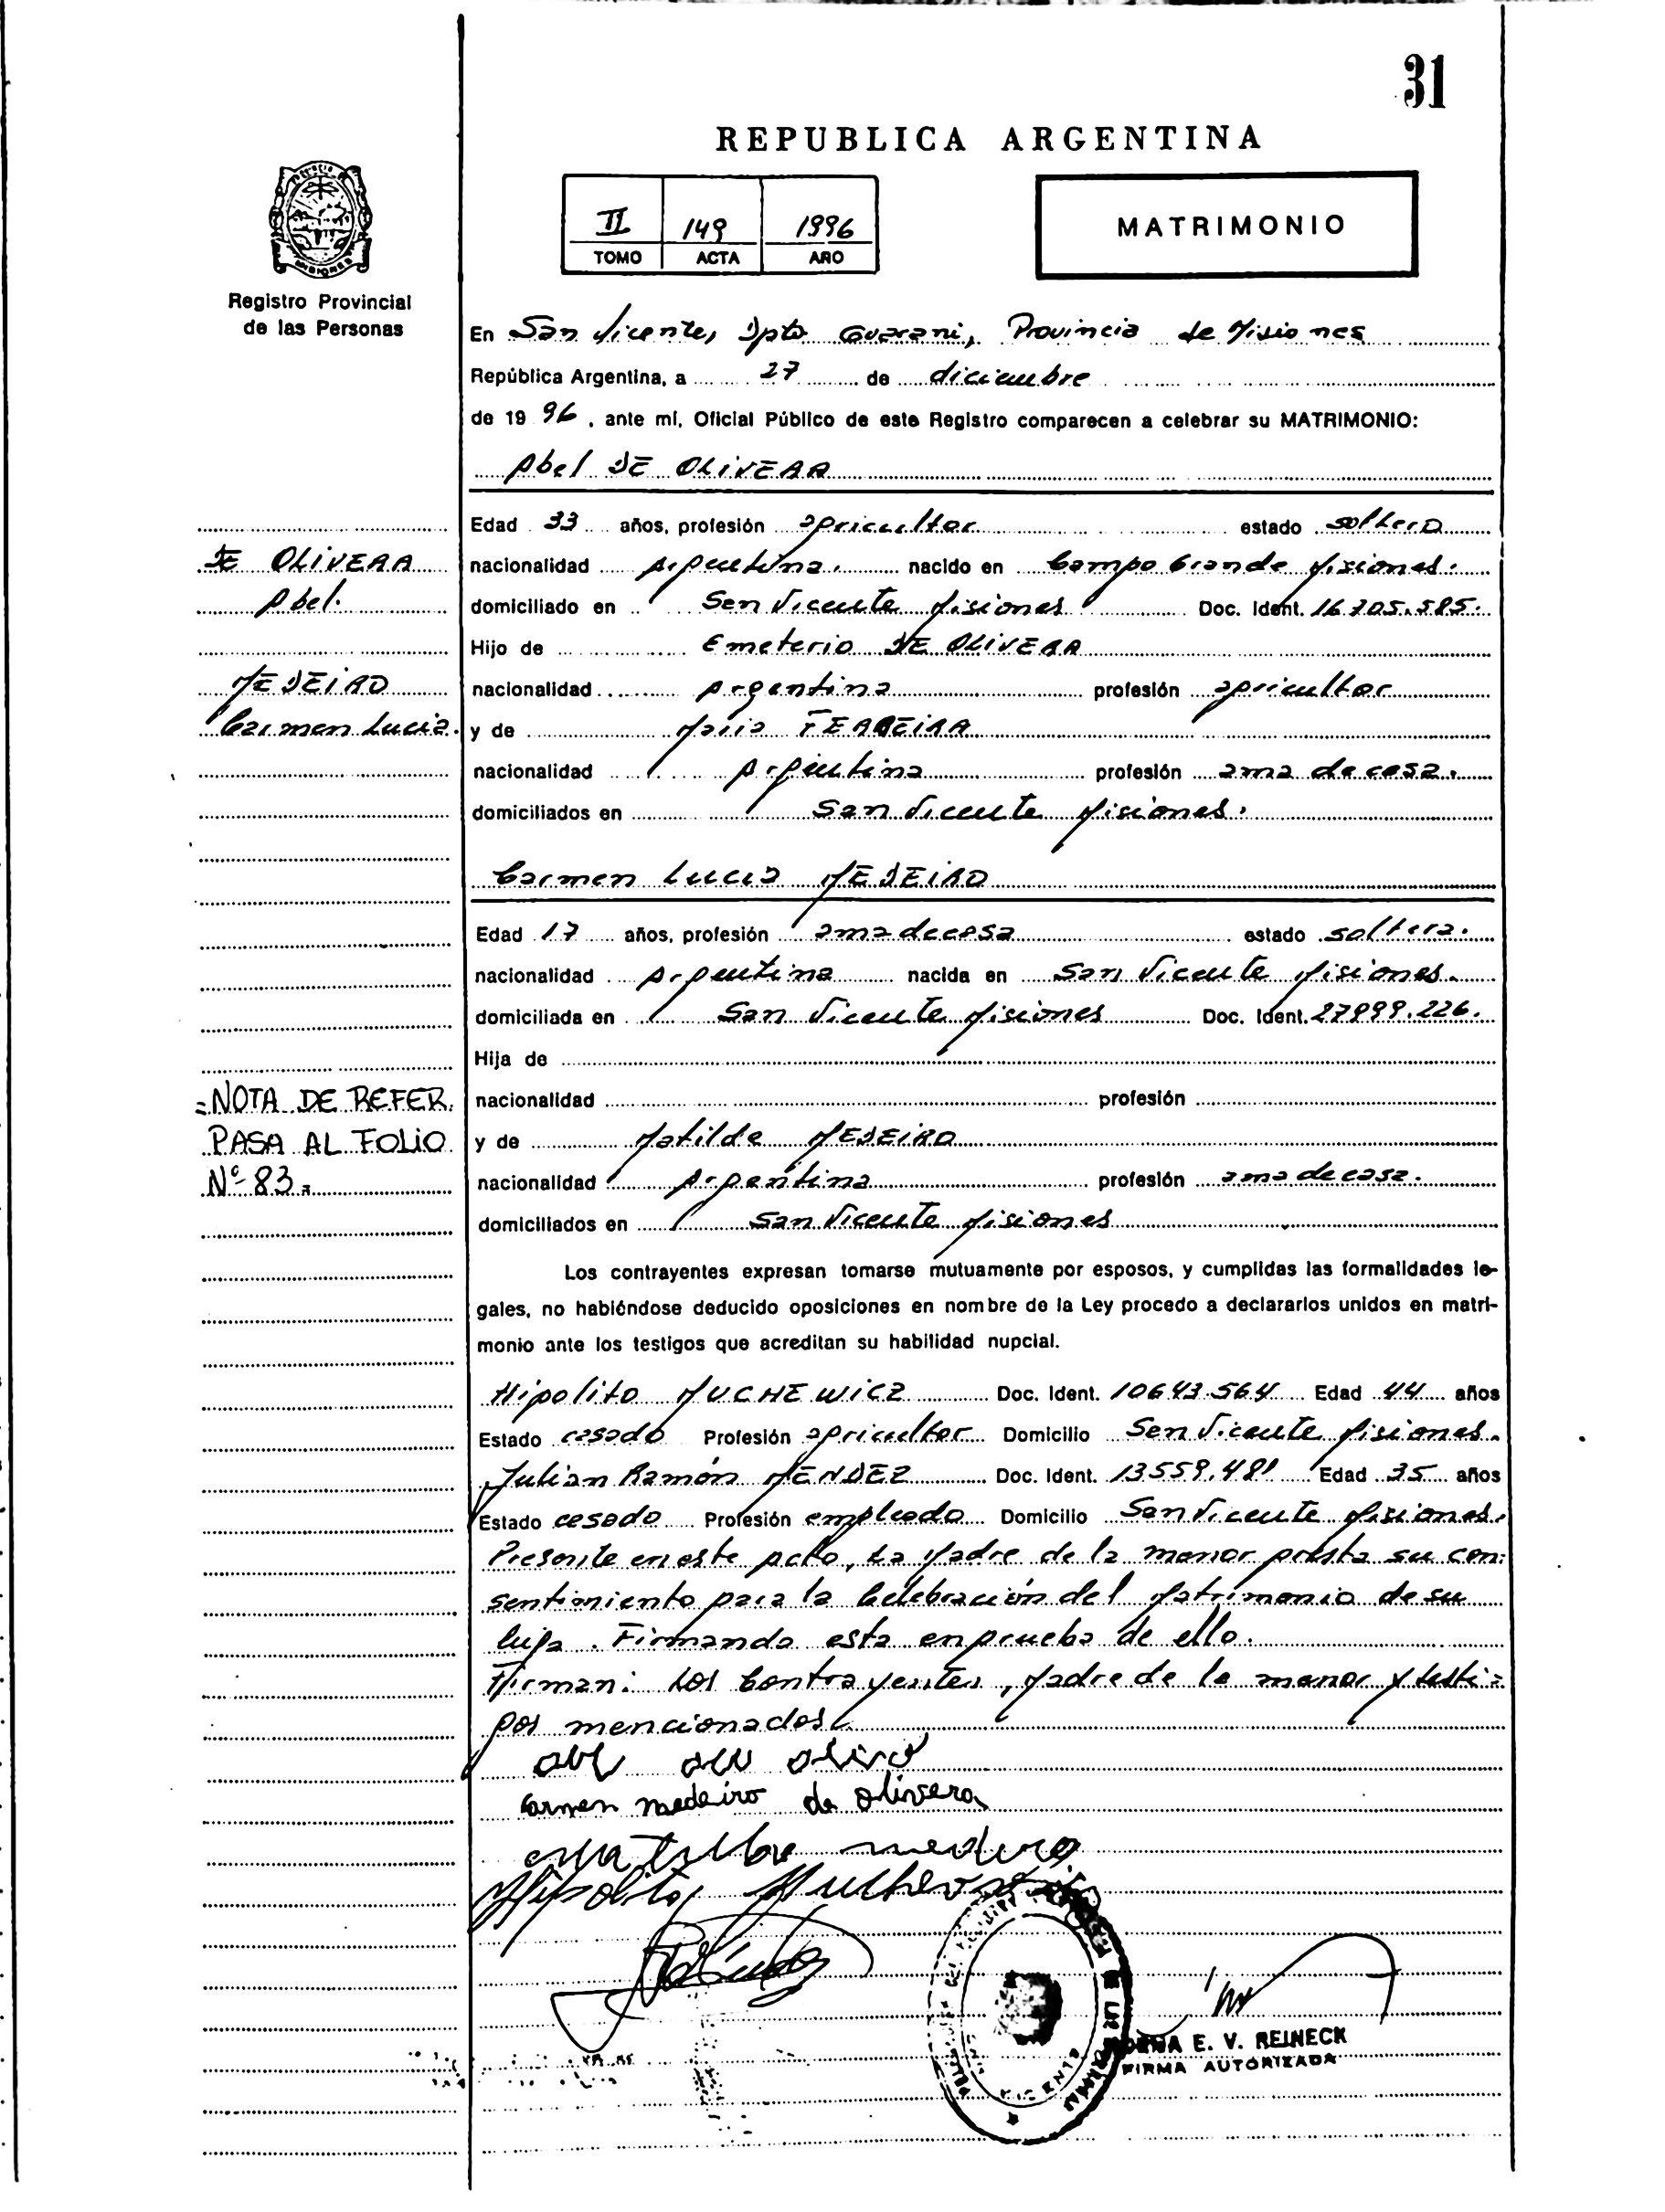 31
REPUBLICA ARGENTINA
II 149 1996
TOMO ACTA AÑO
MATRIMONIO
MISIONES
Registro Provincial
de las Personas
En San Vicente, Dpto Guarani, Provincia de Misiones
República Argentina, a 27 de diciembre
de 1996, ante mí, Oficial Público de este Registro comparecen a celebrar su MATRIMONIO:
Abel DE OLIVERA
Edad 33 años, profesión agricultor estado soltero
nacionalidad Argentina. nacido en Campo Grande Misiones.
domiciliado en San Vicente Misiones Doc. Ident. 16.705.585.
Hijo de Emeterio DE OLIVERA
nacionalidad Argentina profesión agricultor
y de Maria FERREIRA
nacionalidad Argentina profesión ama de casa.
domiciliados en San Vicente Misiones.
DE OLIVERA
Abel.
MEDEIRO
Carmen Lucia.
Carmen Lucia MEDEIRO
Edad 17 años, profesión ama de casa estado soltera.
nacionalidad Argentina nacida en San Vicente Misiones.
domiciliada en San Vicente Misiones Doc. Ident. 27999.226.
Hija de
nacionalidad profesión
y de Matilde MEDEIRO
nacionalidad Argentina profesión ama de casa.
domiciliados en San Vicente Misiones
=NOTA DE REFER.
PASA AL FOLIO
Nº 83=
Los contrayentes expresan tomarse mutuamente por esposos, y cumplidas las formalidades le-
gales, no habiéndose deducido oposiciones en nombre de la Ley procedo a declararlos unidos en matri-
monio ante los testigos que acreditan su habilidad nupcial.
Hipolito MUCHEWICZ Doc. Ident. 10643.564 Edad 44 años
Estado casado Profesión agricultor Domicilio San Vicente Misiones.
Julian Ramón MENDEZ Doc. Ident. 13559.481 Edad 35 años
Estado casado Profesión empleado Domicilio San Vicente Misiones.
Presente en este acto, La Madre de la menor presta su con=
sentimiento para la Celebración del Matrimonio de su
hija. Firmando esta en prueba de ello.
Firman: Los Contrayentes, Madre de la menor y testi=
gos mencionados
Carmen medeiro de olivera
Hipolito
E. V. REINECK
FIRMA AUTORIZADA